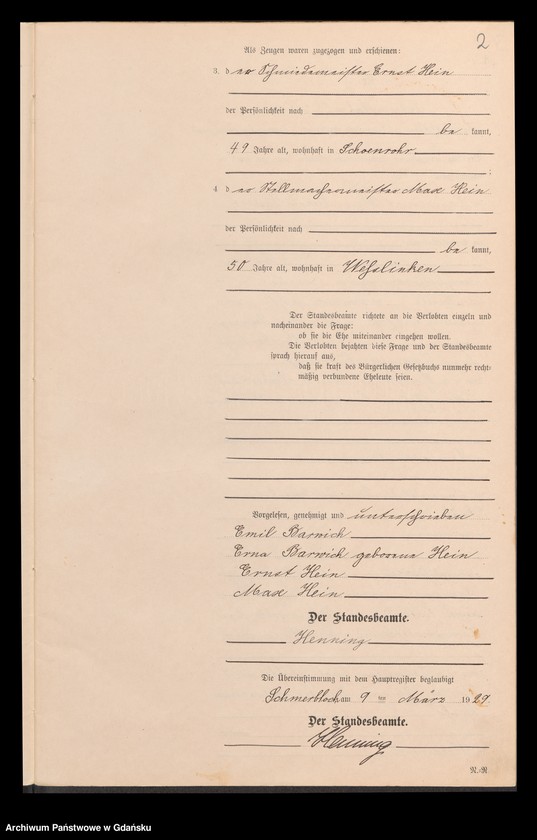 2
Als Zeugen waren zugezogen und erschienen:
3. der Schmiedemeister Ernst Hein
der Persönlichkeit nach
bekannt,
49 Jahre alt, wohnhaft in Schoenrohr
;
4 der Stellmachermeister Max Hein
der Persönlichkeit nach
bekannt,
50 Jahre alt, wohnhaft in Wesslinken
Der Standesbeamte richtete an die Verlobten einzeln und
nacheinander die Frage:
ob sie die Ehe miteinander eingehen wollen.
Die Verlobten bejahten diese Frage und der Standesbeamte
sprach hierauf aus,
daß sie kraft des Bürgerlichen Gesetzbuchs nunmehr recht-
mäßig verbundene Eheleute seien.
Vorgelesen, genehmigt und unterschrieben
Emil Barwich
Erna Barwich geborene Hein
Ernst Hein
Max Hein
Der Standesbeamte.
Henning
Die Übereinstimmung mit dem Hauptregister beglaubigt
Schmerblock am 9 ten März 1929.
Der Standesbeamte.
Henning
R.-R
Archiwum Państwowe w Gdańsku